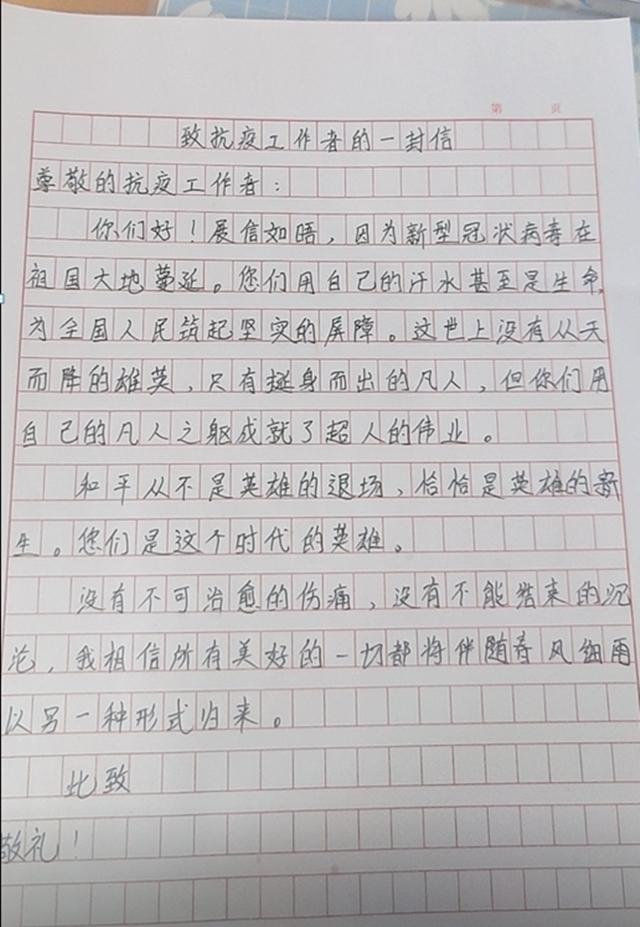 第 页
致抗疫工作者的一封信
尊敬的抗疫工作者：
你们好！展信如晤，因为新型冠状病毒在
祖国大地蔓延。您们用自己的汗水甚至是生命，
为全国人民筑起坚实的屏障。这世上没有从天
而降的雄英，只有挺身而出的凡人，但你们用
自己的凡人之躯成就了超人的伟业。
和平从不是英雄的退场，恰恰是英雄的新
生。您们是这个时代的英雄。
没有不可治愈的伤痛，没有不能结束的沉
沦，我相信所有美好的一切都将伴随春风细雨
以另一种形式归来。
此致
敬礼！